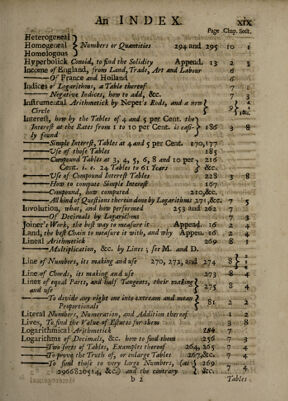 An INDEX. xix
Page .Chap. Sect.
Heterogeneal
Homogeneal Numbers or Quantities 294 and 295 10 1
Homologous
Hyperbolick Conoid, to find the Solidity Append. 13 2 3
Income of England, from Land, Trade, Art and Labour 6
Of France and Holland 6
Indices of Logarithms, a Table thereof 7 1
Negative Indices, how to add, &c. 7
Instrumental Arithmetick by Neper's Rods, and a new
Circle
Interest, how by the Tables of 4 and 5 per Cent. the
Interest at the Rates from 1 to 10 per Cent. is easi- 185 3 8
ly found
Simple Interest, Tables at 4 and 5 per Cent. 170,177
Use of those Tables 185
Compound Tables at 3, 4, 5, 6, 8 and 10 per 216
Cent. i. e. 24 Tables to 61 Years &c.
Use of Compound Interest Tables 228 3 8
How to compute Simple Interest 167
Compound, how computed 210,&c.
All kind of Questions therein done by Logarithms 271,&c. 7 5
Involution, what, and how performed 253 and 262 7 3
Of Decimals by Logarithms 7 3
Joiner's Work, the best way to measure it Append. 16 2 4
Land, the best Chain to measure it with, and why Appen. 16 2 4
Lineal Arithmetick 269 8 1
Multiplication, &c. by Lines; see M. and D.
Line of Numbers, its making and use 270, 272, and 274 8
Line of Chords, its making and use 273 8 4
Lines of equal Parts, and half Tangents, their making 275 8 4
and use
To divide any right one into extream and mean 81 2 3
Proportionals
Literal Numbers, Numeration, and Addition thereof 4 2
Lives, To find the Value of Estates for them 3 8
Logarithmical Arithmetick 7
Logarithms of Decimals, &c. how to find them 256 7 3
Two sorts of Tables, Examples thereof 264, 265 7 4
To prove the Truth of, or enlarge Tables 267,&c. 7 4
To find those to very large Numbers, (as 269 7 4
3966820514, &c.) and the contrary &c.
b 2 Tables